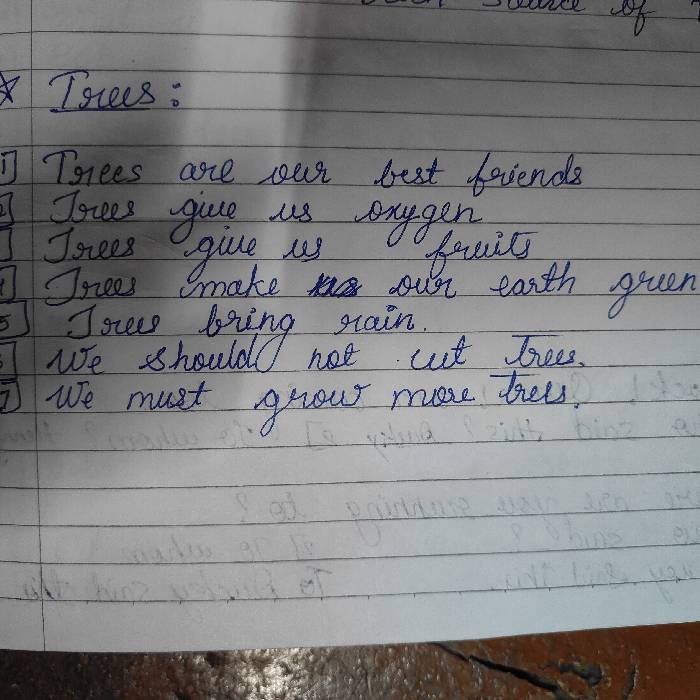 source of
☆ Trees:
1 Trees are our best friends
2 Trees give us oxygen
Trees give us fruits
4 Trees make our earth green
5 Trees bring rain.
6 We should not cut trees.
7 We must grow more trees.